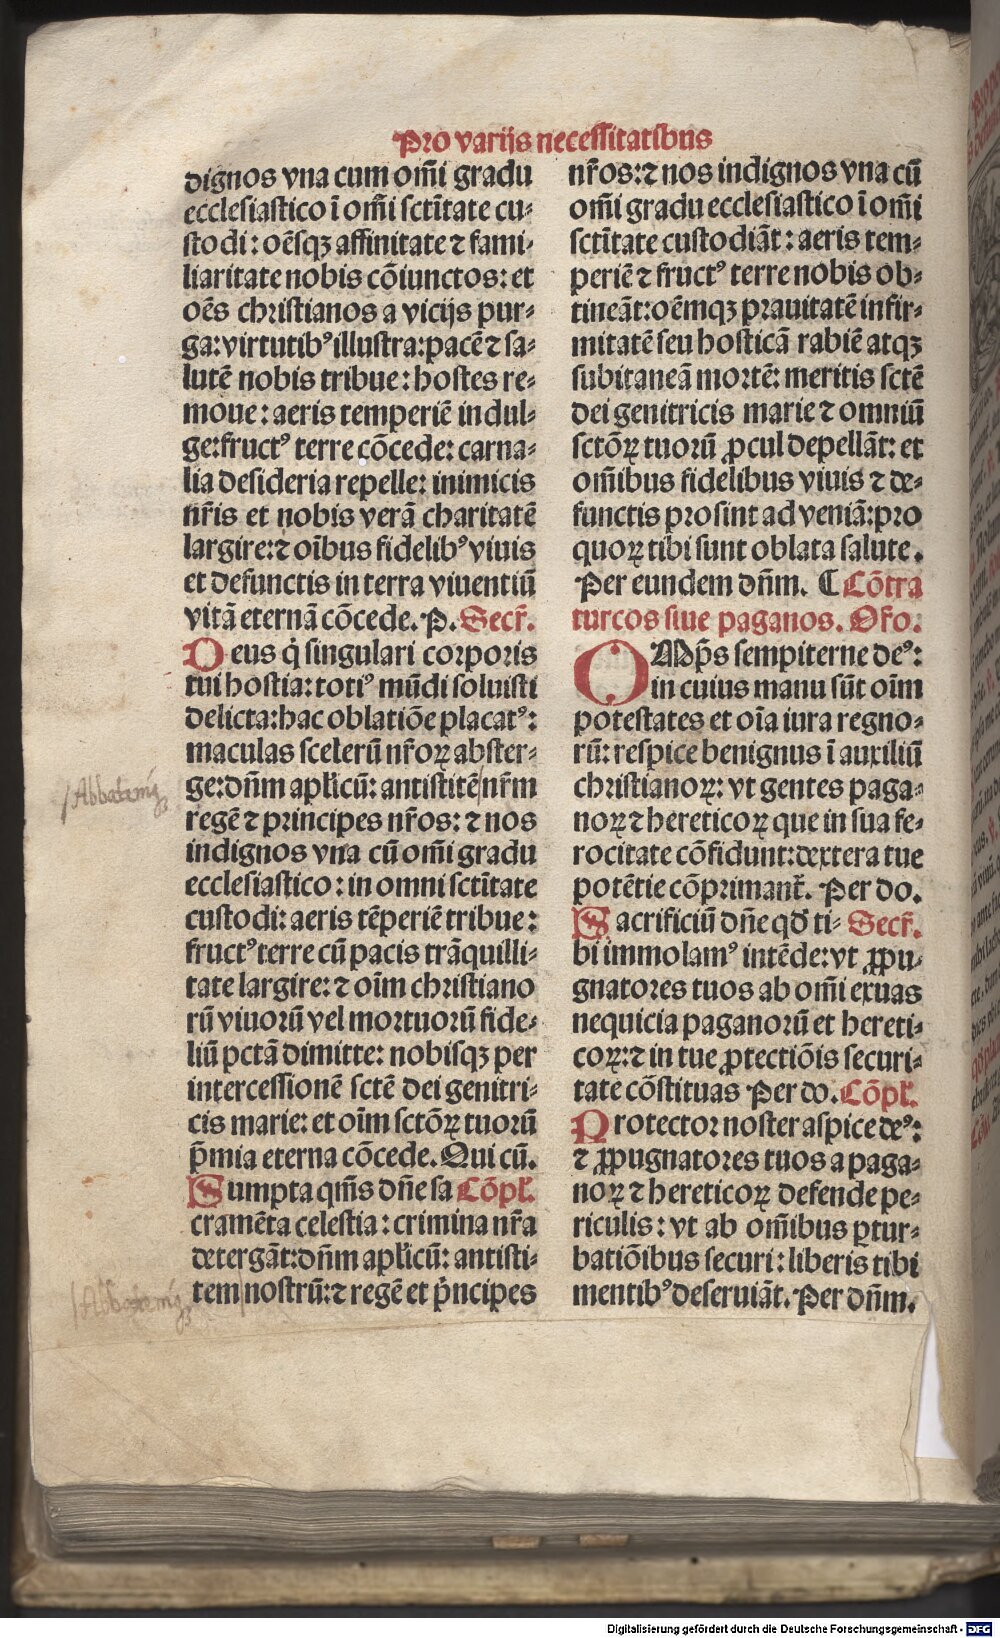 Pro varijs necessitatibus
dignos vna cum om̄i gradu
ecclesiastico ī om̄i sctītate cu-
stodi: oēsqꝫ affinitate ⁊ fami-
liaritate nobis cōiunctos: et
oēs christianos a vicijs pur-
ga: virtutibꝰ illustra: pacē ⁊ sa-
lutē nobis tribue: hostes re-
moue: aeris temperiē indul-
ge: fructꝰ terre cōcede: carna-
lia desideria repelle: inimicis
nr̄is et nobis verā charitatē
largire: ⁊ oībus fidelibꝰ viuis
et defunctis in terra viuentiū
vitā eternā cōcede. P. Secr̄.
Deus q̇ singulari corporis
tui hostia: totiꝰ mūdi soluisti
delicta: hac oblatiōe placatꝰ:
maculas scelerū nr̄oꝝ abster-
ge: dn̄m apl̓icū: antistitē nr̄m
/Abbatem
regē ⁊ principes nr̄os: ⁊ nos
indignos vna cū om̄i gradu
ecclesiastico: in omni sctītate
custodi: aeris tēperiē tribue:
fructꝰ terre cū pacis trāquilli-
tate largire: ⁊ oīm christiano
rū viuorū vel mortuorū fide-
liū pctā dimitte: nobisqꝫ per
intercessionē sctē dei genitri-
cis marie: et oīm sctōꝝ tuorū
p̄mia eterna cōcede. Qui cū.
Sumpta qm̄s dn̄e sa Cōpl̓.
cramēta celestia: crimina nr̄a
detergāt: dn̄m apl̓icū: antisti-
tem nostrū: ⁊ regē et pṙncipes
/Abbatem
nr̄os: ⁊ nos indignos vna cū
om̄i gradu ecclesiastico ī om̄i
sctītate custodiāt: aeris tem-
periē ⁊ fructꝰ terre nobis ob-
tineāt: oēmqꝫ prauitatē infir-
mitatē seu hosticā rabiē atqꝫ
subitaneā mortē: meritis sctē
dei genitricis marie ⁊ omniū
sctōꝝ tuorū ꝓcul depellāt: et
om̄ibus fidelibus viuis ⁊ de-
functis prosint ad veniā: pro
quoꝝ tibi sunt oblata salute.
Per eundem dn̄m. ¶ Cōtra
turcos siue paganos. Oro.
OMp̄s sempiterne deꝰ:
in cuius manu sūt oīm
potestates et oīa iura regno-
rū: respice benignus ī auxiliū
christianoꝝ: vt gentes paga-
noꝝ ⁊ hereticoꝝ que in sua fe-
rocitate cōfidunt: dextera tue
potētie cōprimant̄. Per do.
Sacrificiū dn̄e qd̄ ti- Secr̄.
bi immolamꝰ intēde: vt ꝓpu-
gnatores tuos ab om̄i exuas
nequicia paganorū et hereti-
coꝝ: ⁊ in tue ꝓtectiōis securi-
tate cōstituas Per do. Cōpl̓.
Protector noster aspice deꝰ:
⁊ ꝓpugnatores tuos a paga-
noꝝ ⁊ hereticoꝝ defende pe-
riculis: vt ab om̄ibus ꝑtur-
batiōibus securi: liberis tibi
mentibꝰ deseruiāt. Per dn̄m.
Digitalisierung gefördert durch die Deutsche Forschungsgemeinschaft - DFG